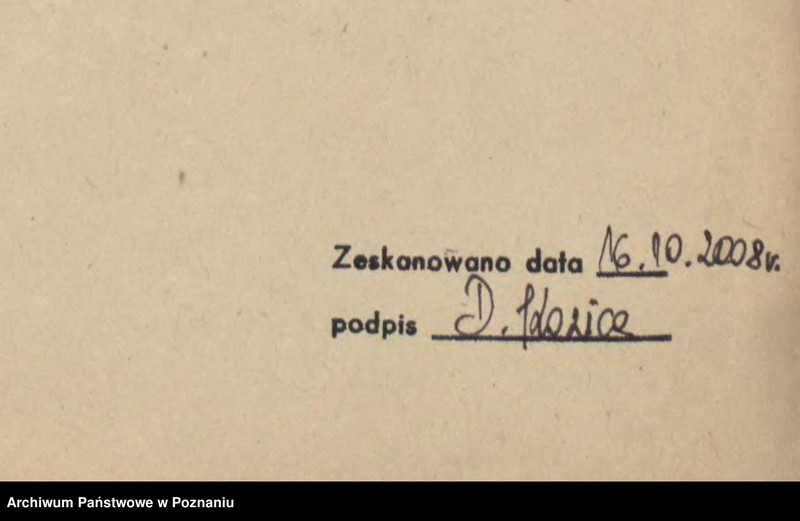 Zeskanowano data 16.10.2008r.
podpis D.
Archiwum Państwowe w Poznaniu